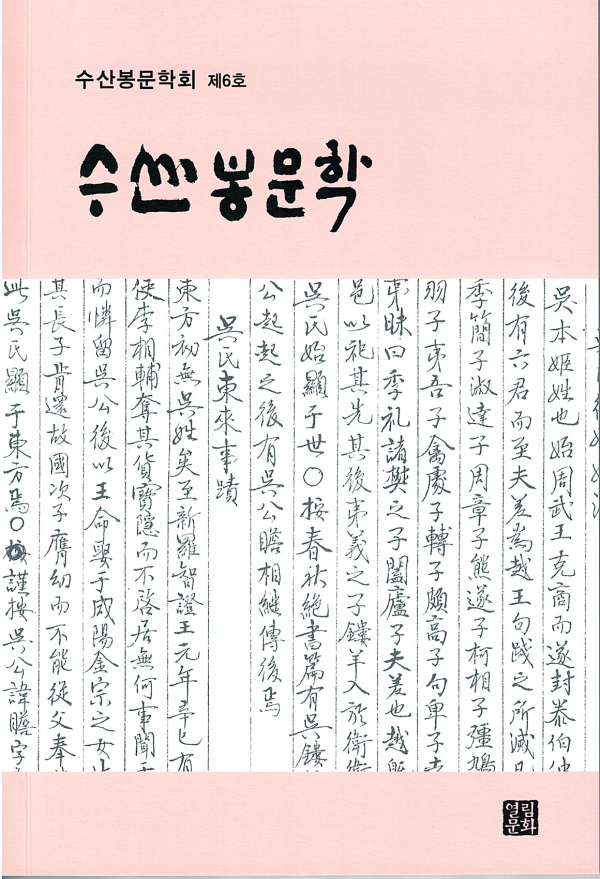 수산봉문학회 제6호
수산봉문학
吳本姬姓也始周武王克商而遂封泰伯仲
後有六君而至夫差爲越王句踐之所滅
季簡子淑達子周章子熊遂子柯相子彊鳩
羽子夷吾子禽處子轉子頗高子句卑子去
夷昧曰季札諸樊之子闔廬子夫差也越旣
邑以祀其先其後弟義之子鏤羊入於衛衛
吳氏始顯于世○按春秋絶書篇有吳鏤
公起起之後有吳公瞻相繼傳後焉
吳氏東來事蹟
東方初無吳姓矣至新羅智證王元年辛巳有
使李相輔奪其貨寶隱而不啓居無何事聞
而憐留吳公後以王命娶于咸陽金宗之女
其長子肯還故國次子膺幼而不能從父奉
此吳氏顯于東方焉○謹按吳公諱瞻字
열림
문화